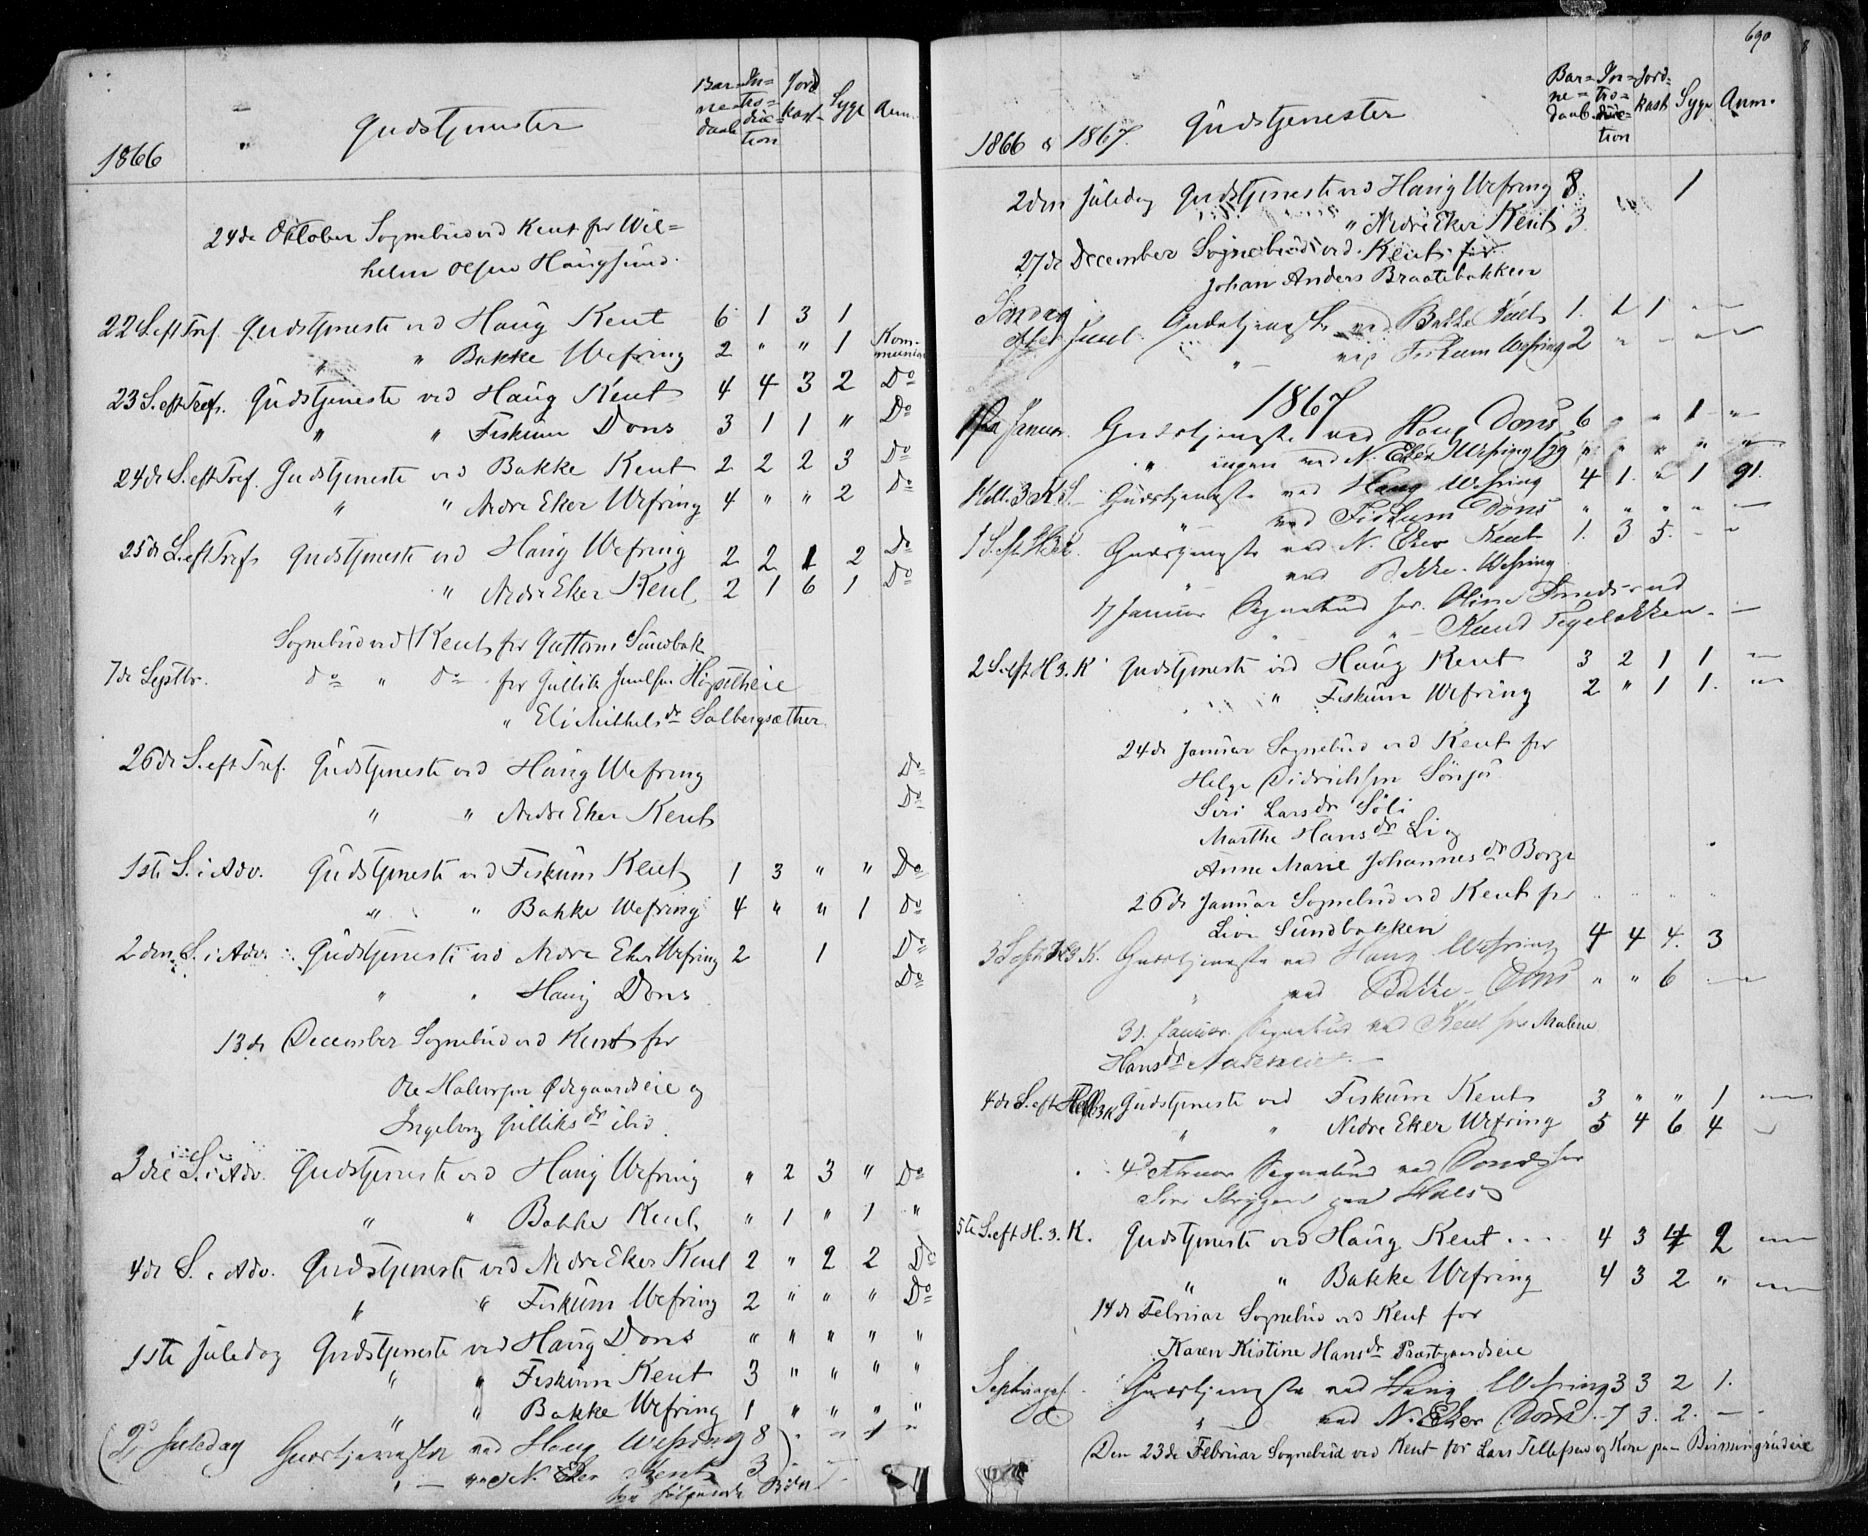 1866
Gudstjenester
Bar=ne=daab In=tro=duc=tion Jordkast Syge Anm.
24de Oktober Sognebud ved Kent for Wil=
helm Olsen Haugsund.
22 S. eft Tref. Gudstjeneste ved Haug Kent 6 1 3 1
" " Bakke Wefring 2 " " 1 Kommunion
23 S. eft Tref. Gudstjeneste ved Haug Kent 4 4 3 2 Do
" " Fiskum Dons 3 1 1 " Do
24de S. eft Tref. Gudstjeneste ved Bakke Kent 2 2 2 3 Do
" " Nedre Eker Wefring 4 " " 2 Do
25de S. eft Tref. Gudstjeneste ved Haug Wefring 2 2 1 2 Do
" Nedre Eker Kent 2 1 6 1 Do
Sognebud ved Kent for Guttorm Sundbak
7de Septbr. do " do for Gullik Juulsen
" Eli Mikkelsdr Solbergsæther
26de S. eft Tref. Gudstjeneste ved Haug Wefring Do
" " Nedre Eker Kent Do
1ste S. i Adv. Gudstjeneste ved Fiskum Kent 1 3 " " Do
" " Bakke Wefring 4 " " 1 Do
2den S. i Adv. Gudstjeneste ved Nedre Eker Wefring 2 1 Do
" " Haug Dons Do
13de December Sognebud ved Kent for
Ole Halvorsen Ødegaardseie og
Ingeborg Gulliksdr ibid.
3die S. i Adv. Gudstjeneste ved Haug Wefring " 2 3 " Do
" " Bakke Kent " 1 " 1 "
4de S. i Adv. Gudstjeneste ved Nedre Eker Kent 2 " 2 2 Do
" " Fiskum Wefring 2 " " " Do
1ste Juledag Gudstjeneste ved Haug Dons " " " " "
" " Fiskum Kent 3 " " " "
" " Bakke Wefring 1 " " " "
(2d Juledag Gudstjeneste ved Haug Wefring 8) " " 1 "
" — ved N. Eker Kent 3
følgende Side
690
1866 & 1867. Gudstjenester
Bar=ne=daab In=tro=duc=tion Jord=kast Syge Anm.
2den Juledag Gudstjeneste ved Haug Wefring 8 1
" Nedre Eker Kent 3
27de December Sognebud ved Kent for
Johan Anders Braatebakken
Søndag
efter Juul Gudstjeneste ved Bakke Kent 1. 1 1 —
" — ved Fiskum Wefring 2 " — —
1867
1ste Januar. Gudstjeneste ved Haug Dons 6 " " 1 "
" ingen ved N. Eker Wefring syg " " " " "
Hell. 3 K. S. Gudstjeneste ved Haug Wefring 4 1. " 1 91.
" ved Fiskum Dons " " " " —
1 S. eft. H 3 K. Gudstjeneste ved N. Eker Kent 1. 3 5. — "
" ved Bakke. Wefring
17 Januar Sognebud for Oline
" — " — Knud
2 S. eft H. 3. K Gudstjeneste ved Haug Kent 3 2 1 1 —
" Fiskum Wefring 2 " 1 1. —
24de Januar Sognebud ved Kent for
Helge Didrichsen
Siri Larsdr Søli
Marthe Hansdr Li og
Anne Marie Johannesdr Borge
26de Januar Sognebud ved Kent for
Live Sundbakken
3 S. eft H 3 K. Gudstjeneste ved Haug Wefring 4 4 4. 3
" ved Bakke — Dons " " 6 —
31. Januar. Sognebud ved Kent for Malene
Hansdr
4de S. eft Hell 3 K Gudstjeneste ved Fiskum Kent 3 " " 1 —
" " Nedre Eker Wefring 5 4 6 4 —
4d Februar Sognebud ved Dons for
Siri
5te S. eft H. 3. K. Gudstjeneste ved Haug Kent 4 3 4 2 —
" " Bakke Wefring 4 3 2 " —
14de Februar Sognebud ved Kent for
Karen Kistine Hansdr Præstgaardseie
Septuages. Gudstjeneste ved Haug Wefring 3 3 2 1.
" ved N. Eker Dons 7 3. 2. —
Den 23de Februar Sognebud ved Kent for Lars Tellefsen og Kone paa